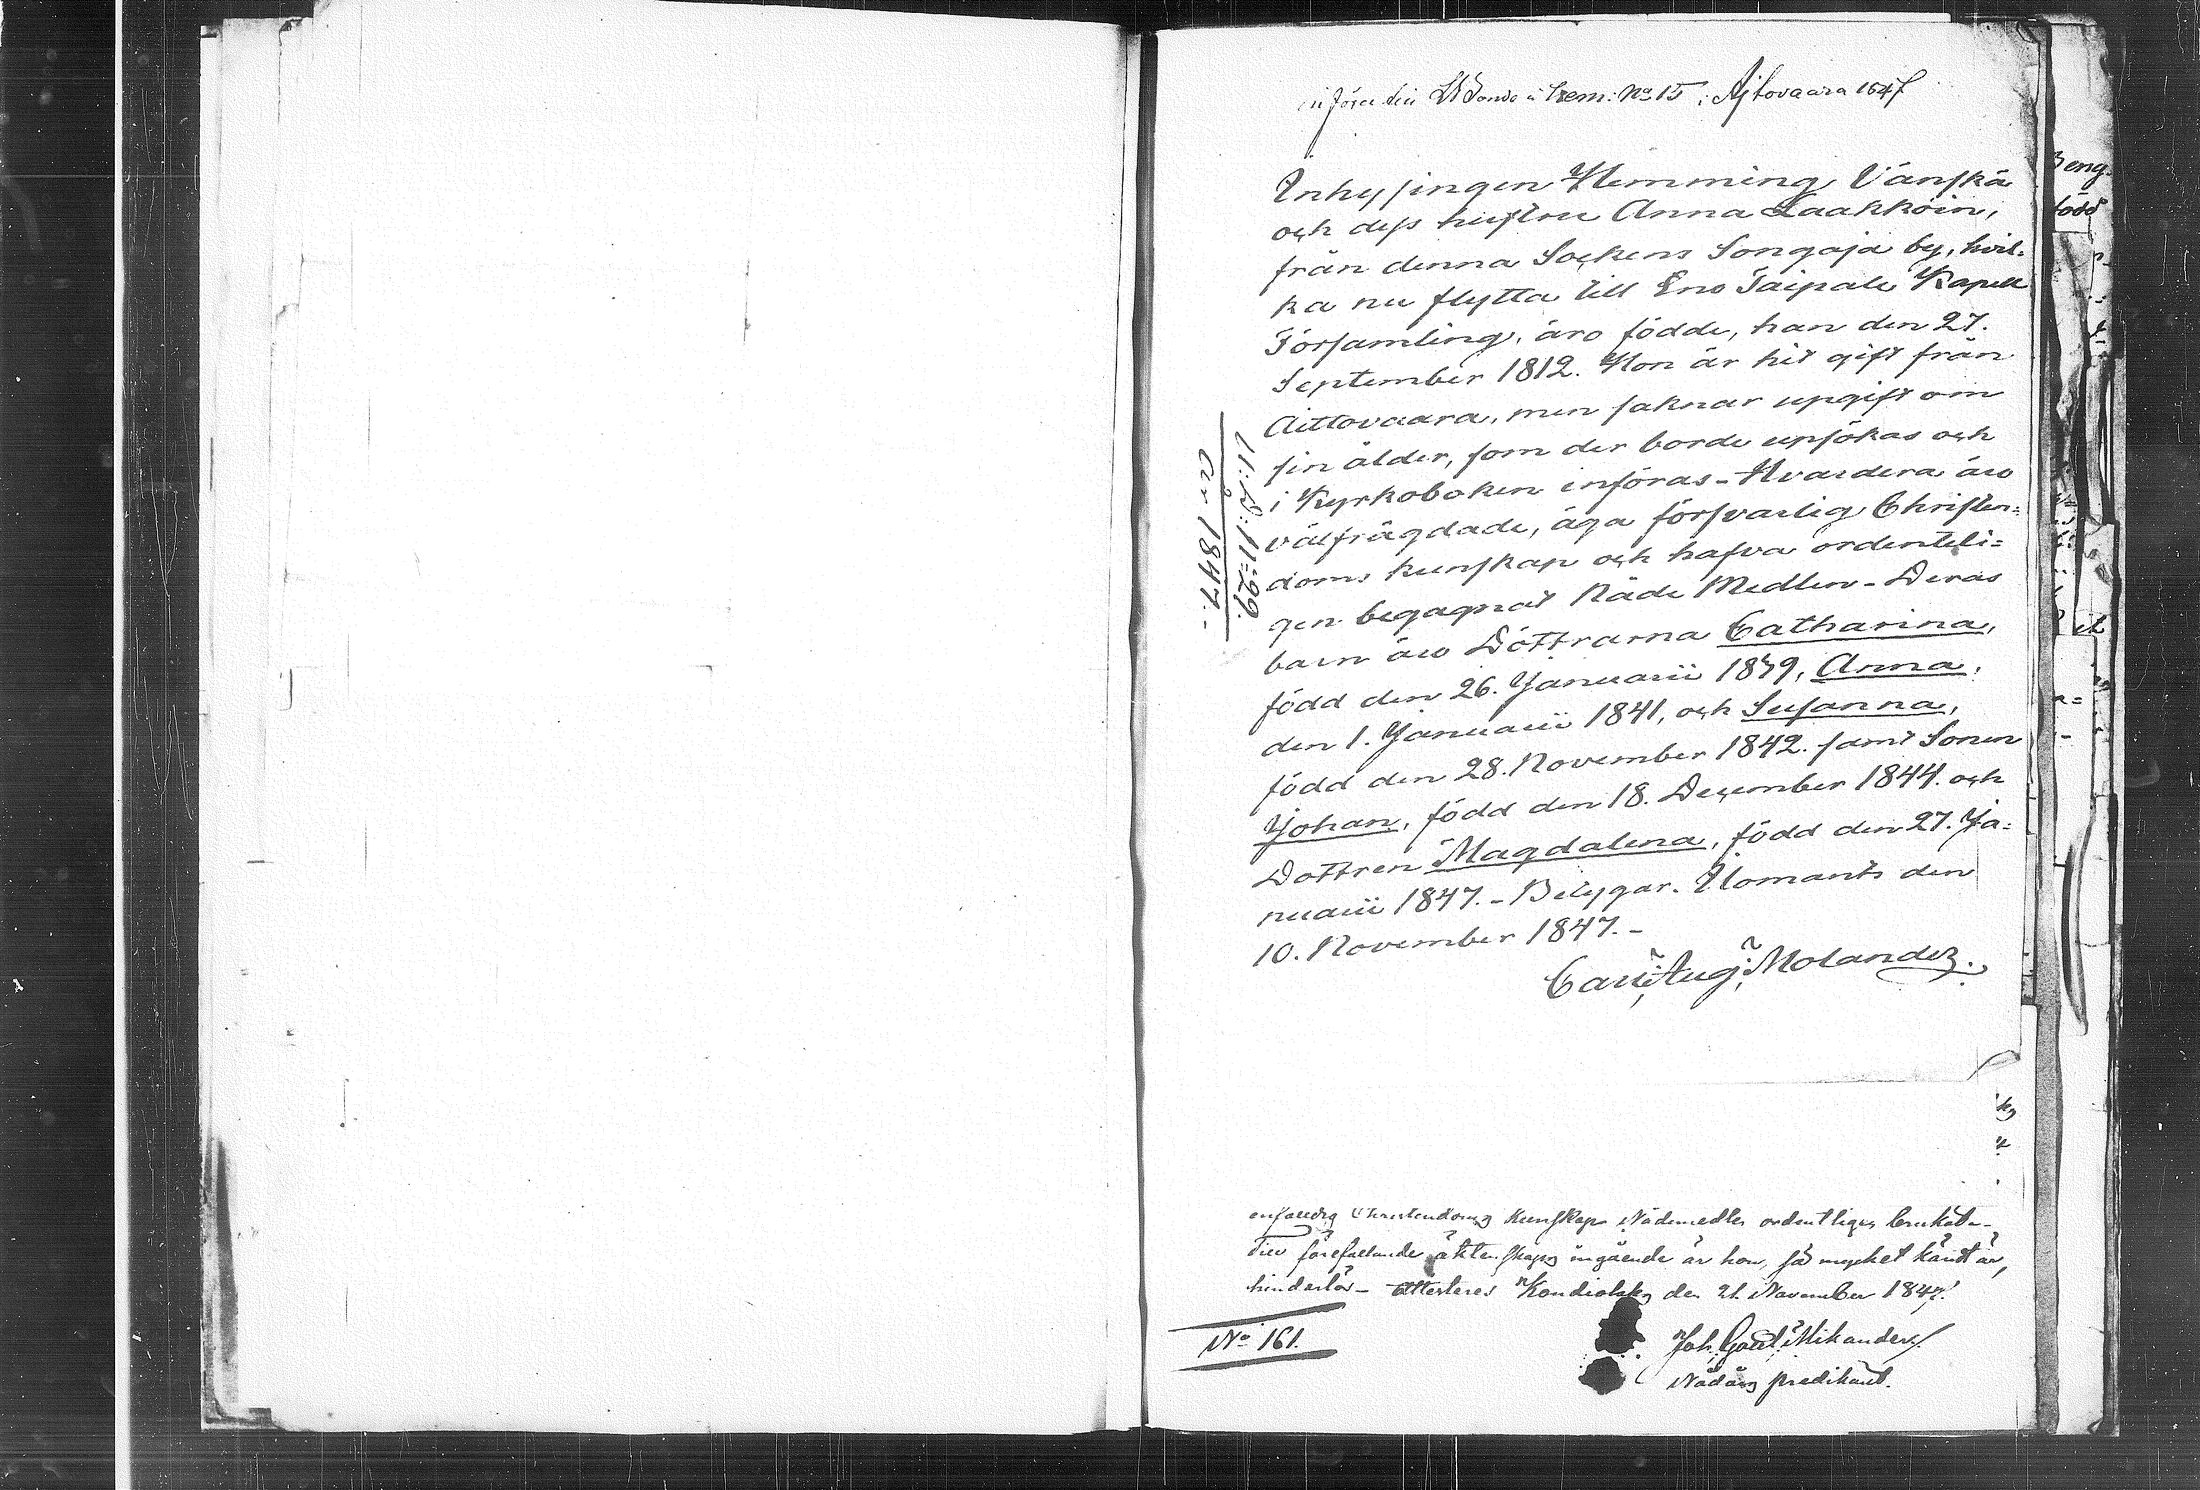 införer den No 15 i Ajtovaara 1847
Inhysingen Hemming Vänskä
och dess hustru Anna Laakkoin,
från denna Sockens Songaja by, hvil-
ka nu flytta till Eno Taipale Kapell
Församling, äro födde, han den 27.
September 1812. Hon är hit gift från
Aittovaara, men saknar upgift om
sin ålder, som der borde upsökas och
i Kyrkoboken införas - Hvardera äro
välfrägdade, äga försvarlig Christen=
doms kunskap och hafva ordenteli=
gen begagnat Nåde Medlen - Deras
barn äro Döttrarna Catharina,
född den 26. Januarii 1839, Anna,
den 1. Januarii 1841, och Susanna,
född den 28. November 1842. samt Sonen
Johan, född den 18. December 1844. och
Dottren Magdalena, född den 27. Ja=
nuarii 1847. - Betygar. Ilomants den
10. November 1847. -
Carl Aug: Molander.
År 1847. -
Christendoms kunskap Nådemedlen ordentligen brukat -
förefallande äktenskaps ingående är hon, så mycket kändt är,
hinderlös - Attesteres Kondiolaks den 21 November 1847.
No 161.
Joh. Gust. Mikander
Nådårs predikant.
Beng
född